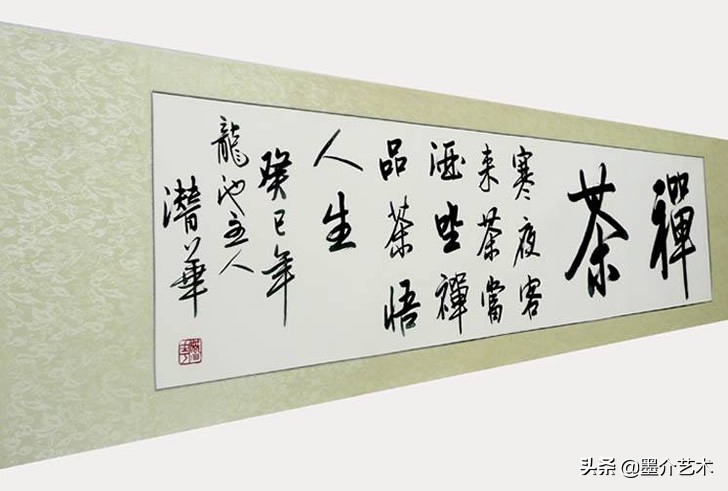 禪
茶
寒夜客
来茶當
酒坐禪
品茶悟
人生
癸巳年
龍池主人
潛華
头条 @墨介艺术